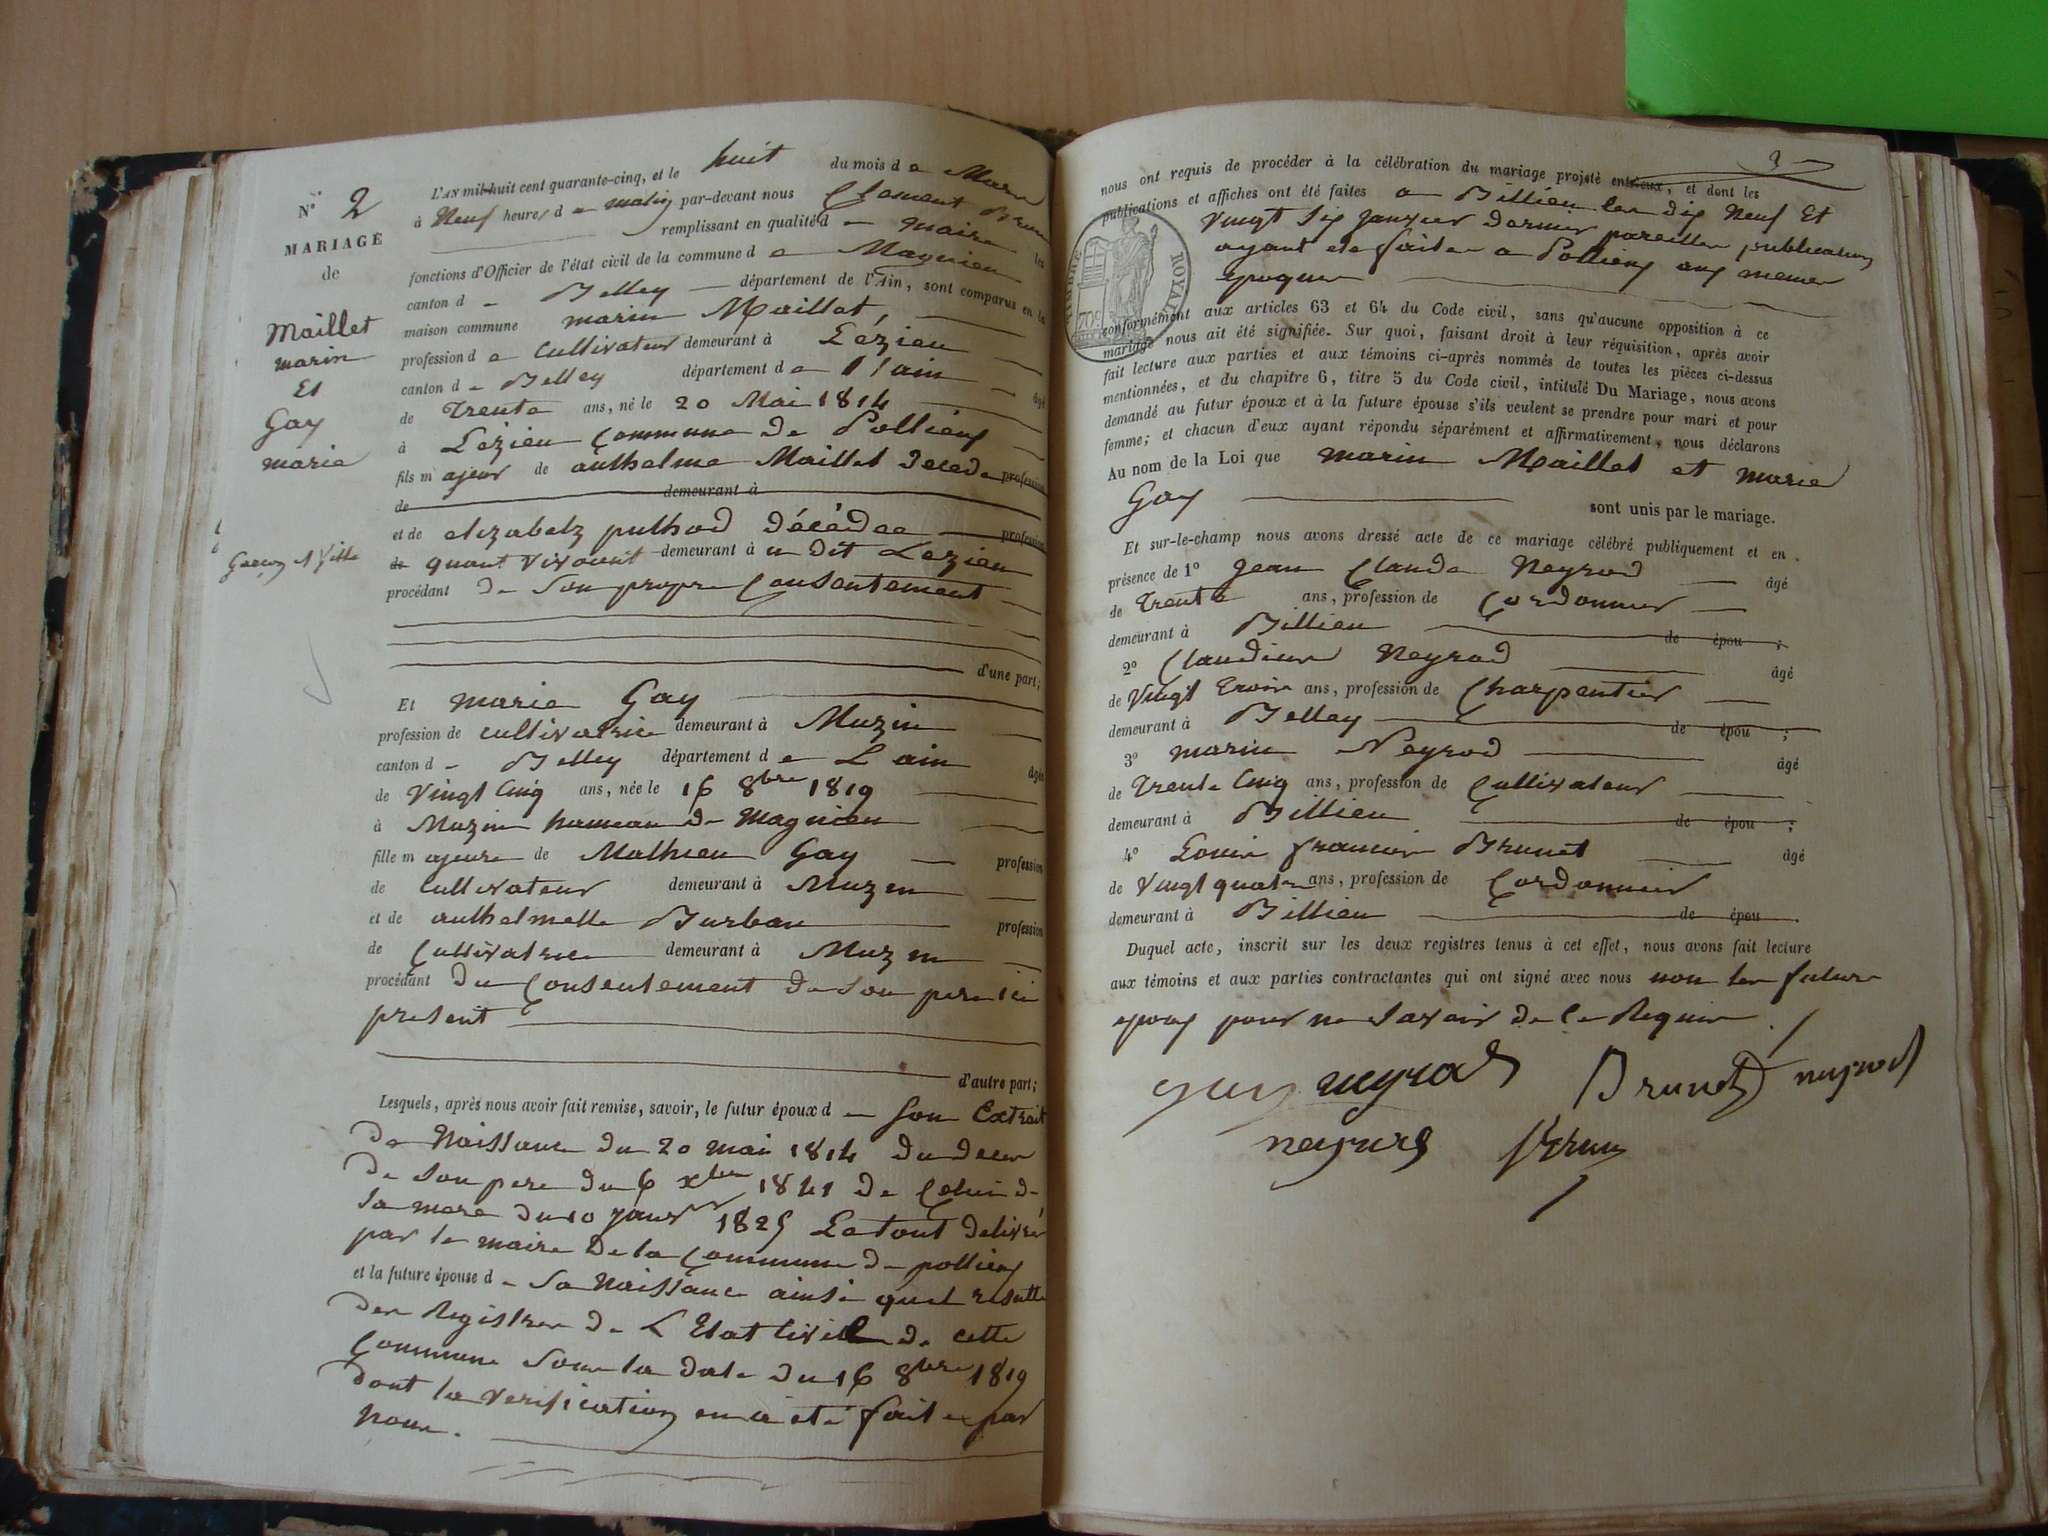 N° 2
MARIAGE
de
Maillet
marin
Et
Gay
marie
Garçon et fille
L'AN mil-huit cent quarante-cinq, et le huit du mois de Mars
à Neuf heures de matin par-devant nous Clement Brun
remplissant en qualité de maire les
fonctions d'Officier de l'état civil de la commune de Magnieu
canton de Belley département de l'Ain, sont comparus en la
maison commune marin Maillet,
profession de Cultivateur demeurant à Lézieu
canton de Belley département de l'ain âgé
de Trente ans, né le 20 Mai 1814
à Lézieu Commune de Pollieux
fils majeur de anthelme Maillet décédé profession
de demeurant à
et de elizabetz pulhod décédée profession
de quant vivoint demeurant à u dit Lezieu
procédant de Son propre Consentement
d'une part;
Et marie Gay
profession de cultivatrice demeurant à Muzin
canton de Belley département de L'ain âgée
de Vingt Cinq ans, née le 16 8bre 1819
à Muzin hameau de Magnieu
fille majeure de Mathieu Gay profession
de cultivateur demeurant à Muzin
et de anthelmette Burban profession
de Cultivatrice demeurant à Muzin
procédant du Consentement de Son pere ici
present
d'autre part;
Lesquels, après nous avoir fait remise, savoir, le futur époux de Son Extrait
de Naissance du 20 mai 1814 du deces
de Son pere du 6 xbre 1841 de Celui de
Sa mere du 10 janvr 1825 Le tout delivré
par le maire de la Commune de pollieux
et la future épouse de Sa Naissance ainsi quil resulte
des Registres de L'Etat Civil de cette
Commune Sous la date du 16 8bre 1819
dont la verification en a eté faite par
nous.
nous ont requis de procéder à la célébration du mariage projeté entr'eux, et dont les
publications et affiches ont été faites a Billieu les dix Neuf Et
Vingt Six janvier dernier pareilles publications
ayant ete faites a Pollieux aux memes
epoques
TIMBRE ROYAL
70c
conformément aux articles 63 et 64 du Code civil, sans qu'aucune opposition à ce
mariage nous ait été signifiée. Sur quoi, faisant droit à leur réquisition, après avoir
fait lecture aux parties et aux témoins ci-après nommés de toutes les pièces ci-dessus
mentionnées, et du chapitre 6, titre 5 du Code civil, intitulé Du Mariage, nous avons
demandé au futur époux et à la future épouse s'ils veulent se prendre pour mari et pour
femme; et chacun d'eux ayant répondu séparément et affirmativement, nous déclarons
Au nom de la Loi que marin Maillet et marie
Gay sont unis par le mariage.
Et sur-le-champ nous avons dressé acte de ce mariage célébré publiquement et en
présence de 1° Jean Claude Neyrod âgé
de Trente ans, profession de Cordonnier
demeurant à Billieu de épou ;
2° Claudius Neyrod âgé
de Vingt trois ans, profession de Charpentier
demeurant à Belley de épou ;
3° marin Neyrod âgé
de Trente Cinq ans, profession de Cultivateur
demeurant à Billieu de épou ;
4° Louis françois Brunet âgé
de Vingt quatre ans, profession de Cordonnier
demeurant à Billieu de épou .
Duquel acte, inscrit sur les deux registres tenus à cet effet, nous avons fait lecture
aux témoins et aux parties contractantes qui ont signé avec nous non les futurs
epoux pour ne Savoir de ce Requis.
gay neyrod Brunet neyrod
neyrod Brun